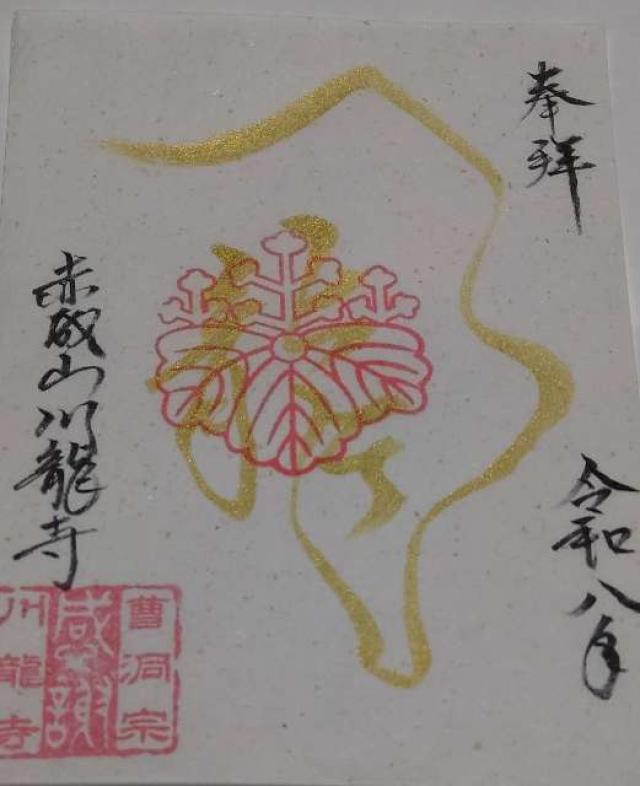 奉拝
令和八年
赤城山川龍寺
曹洞宗
感謝
川龍寺